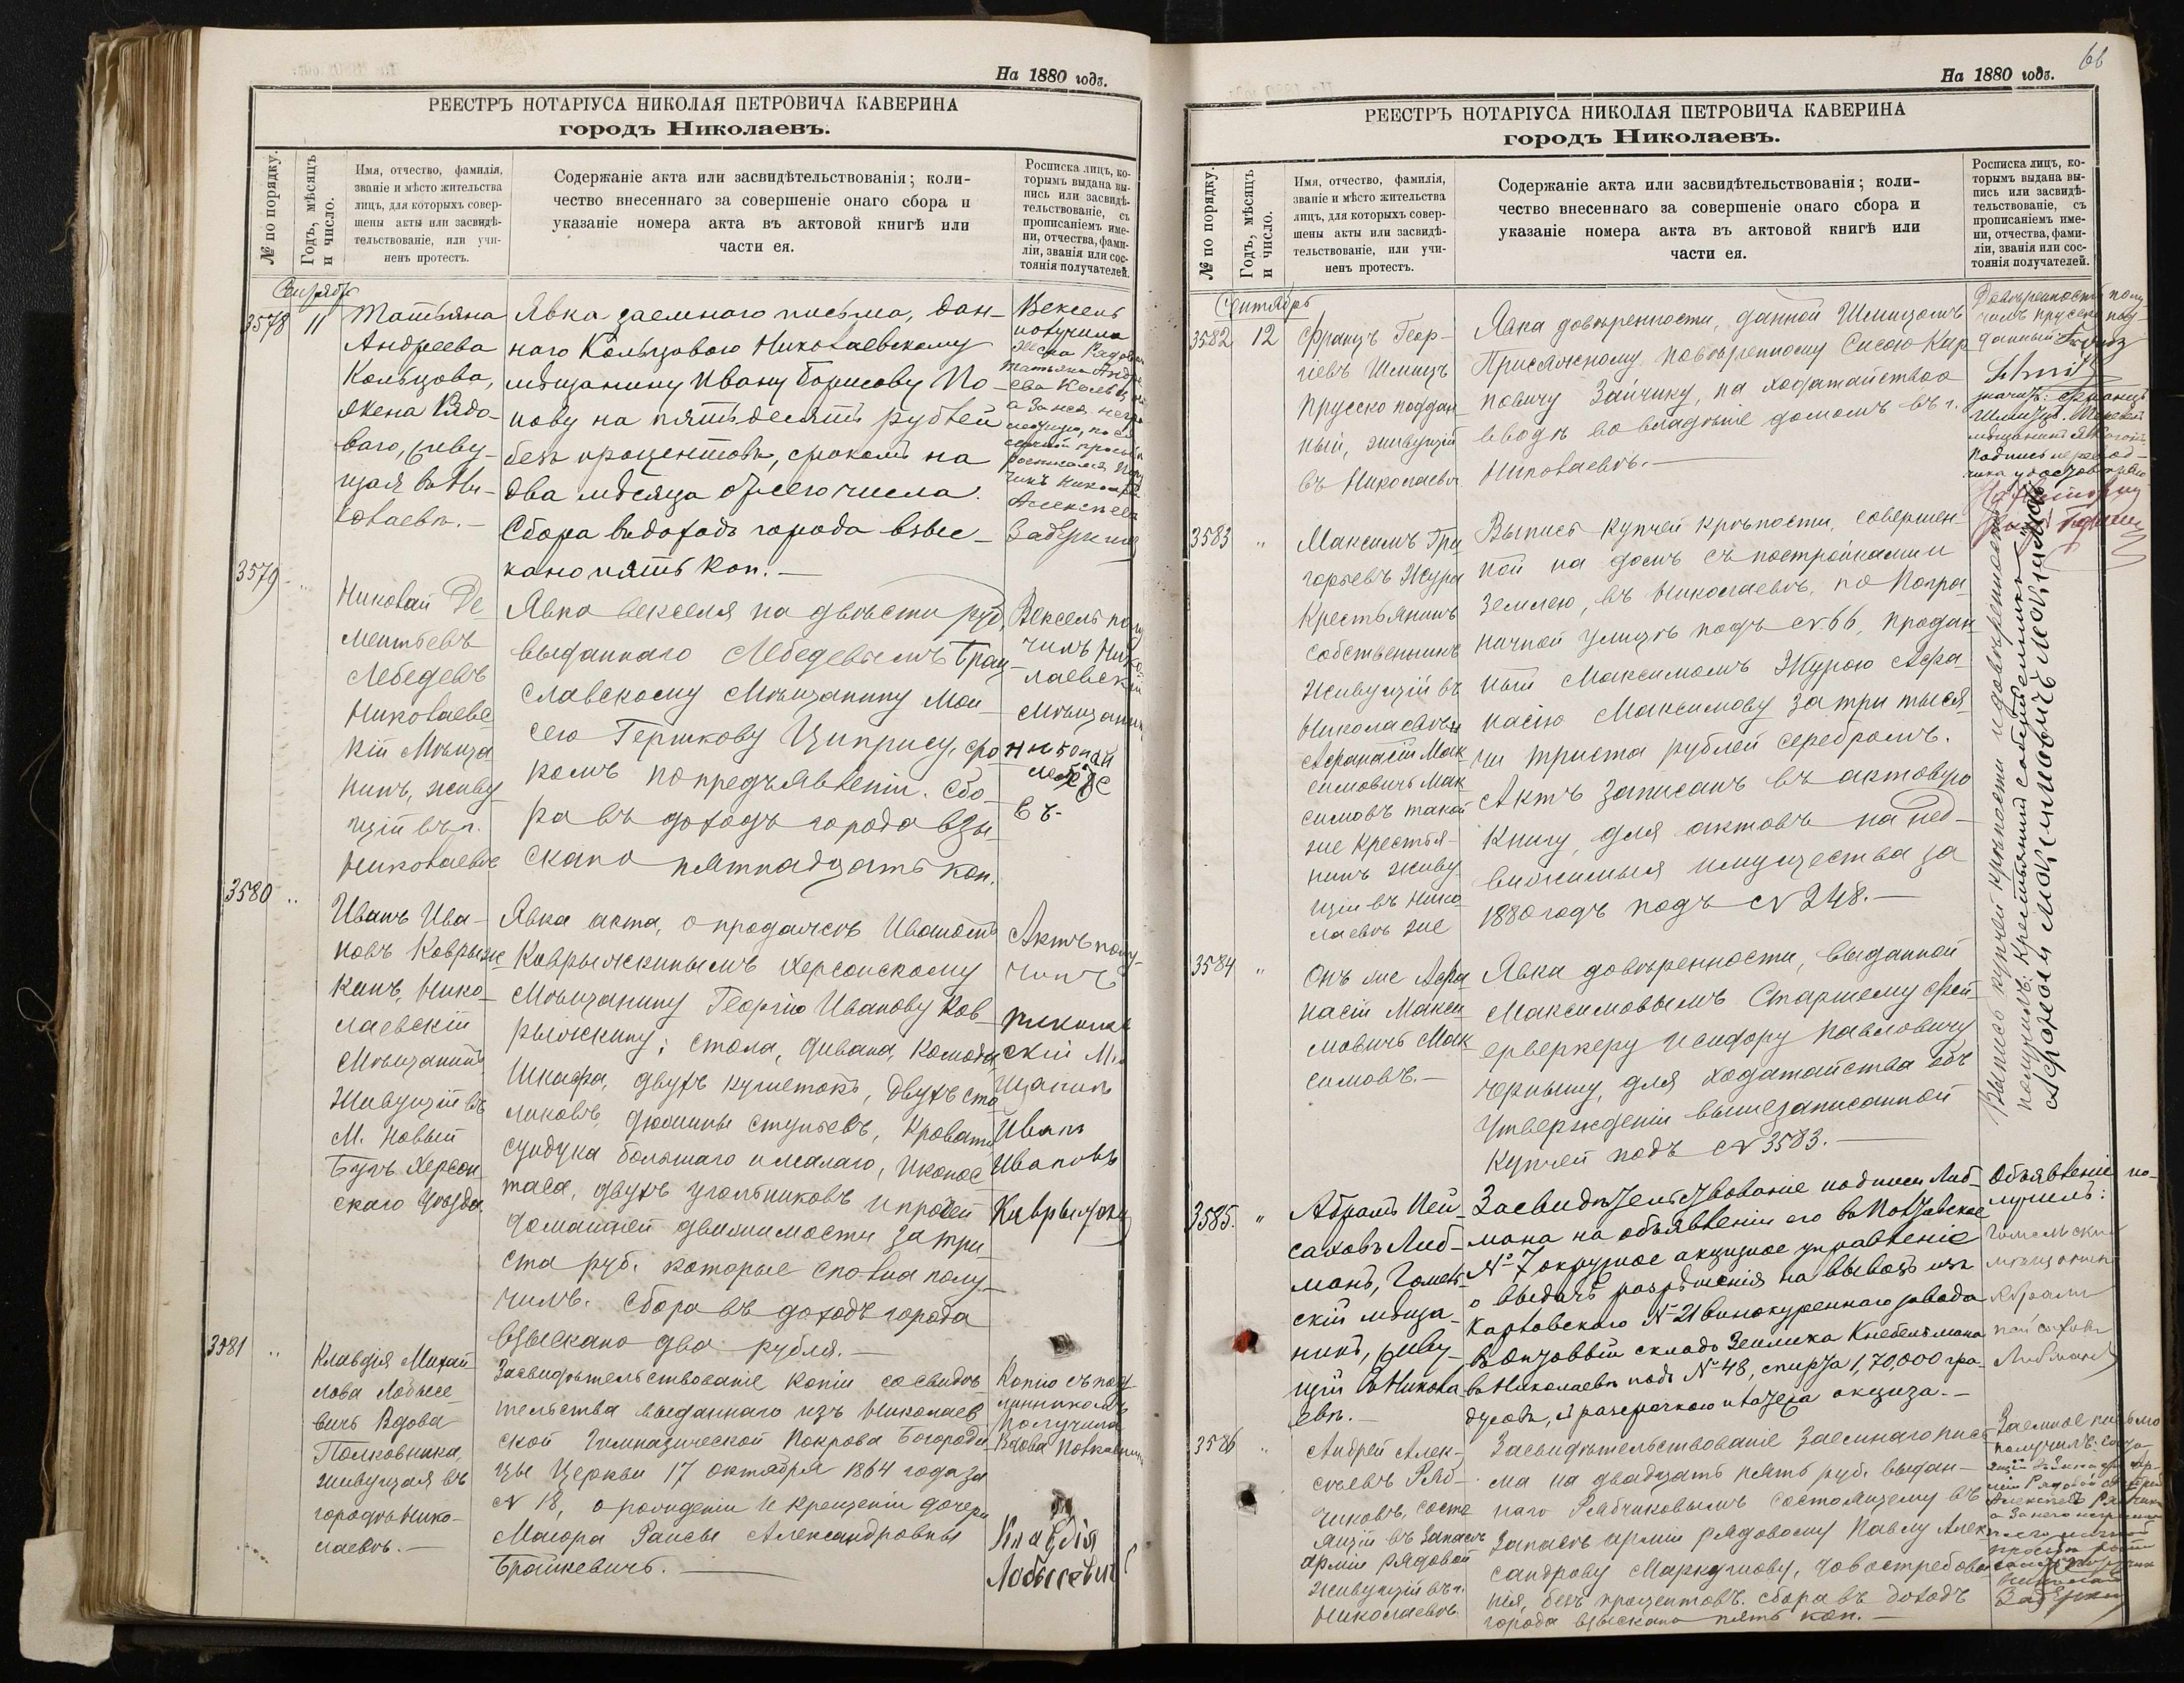 На 1880 годъ.
РЕЕСТРЪ НОТАРІУСА НИКОЛАЯ ПЕТРОВИЧА КАВЕРИНА
городъ Николаевъ.
№ по порядку.
Годъ, мѣсяцъ
и число.
Имя, отчество, фамилія,
званіе и мѣсто жительства
лицъ, для которыхъ совер-
шены акты или засвидѣ-
тельствованіе, или учи-
ненъ протестъ.
Содержаніе акта или засвидѣтельствованія; коли-
чество внесеннаго за совершеніе онаго сбора и
указаніе номера акта въ актовой книгѣ или
части ея.
Росписка лицъ, ко-
торымъ выдана вы-
пись или засвидѣ-
тельствованіе, съ
прописаніемъ име-
ни, отчества, фами-
ліи, званія или сос-
тоянія получателей.
3578
11
Татьяна
Андреева
Кольцова,
жена Рядо-
ваго, живу-
щая въ Ни-
колаевѣ.—
Явка заемнаго письма, дан-
наго Кольцовою Николаевскому
мѣщанину Ивану Борисову По-
пову на пятьдесятъ рублей
безъ процентовъ, срокомъ на
два мѣсяца отъ сего числа.
Сбора въ доходъ города взыс-
кано пять коп.—
Вексель
получила
жена
Татьяна
3579
Николай Де-
ментьевъ
Лебедевъ
Николаевс
кій Мѣща
нинъ, живу
щій въ г.
Николаевѣ
Явка векселя на двѣсти руб,
выданнаго Лебедевымъ Брац-
славскому Мѣщанину Мои
сею Гершкову Ципрису, сро
комъ по предъявленіи. Сбо-
ра въ доходъ города взы
скано пятнадцать коп.
Вексель полу
чилъ Нико
лаевскій
Мѣщанин
Николай
Лебеде
въ.
3580
Иванъ Ива-
новъ Коврыж
кинъ, Нико-
лаевскій
Мѣщанинъ
Живущій въ
М. Новый
Бугъ Херсон
скаго уѣзда
Явка акта, о продажѣ Иваномъ
Коврыжкинымъ Херсонскому
Мѣщанину Георгію Иванову Ков
рыжкину; стола, дивана, комода
Шкафа, двухъ кушетокъ, двухъ сто
ликовъ, дюжины стульевъ, кровати
сундука большаго и малаго, иконос
таса, двухъ угольниковъ и прочей
домашней движимости за три-
ста руб. которые сполна полу-
чилъ. Сбора въ доходъ города
взыскано два рубля.—
Актъ полу-
чилъ
скій
щанинъ
Иванъ
Ивановъ
3581
Клавдія Михай
лова Лобысе
вичъ Вдова
Полковника,
живущая въ
городѣ Нико-
лаевѣ.—
Засвидѣтельствованіе копіи со свидѣ
тельства выданнаго изъ Николаев
ской Гимназической Покрова Богороди
цы Церкви 17 октября 1864 года за
№ 18, о рожденіи и крещеніи дочери
Маіора Раисы Александровны
Брайкевичъ.—
Копію съ под
линникомъ
Получила
Вдова Полковника
Клавдія
Лобысевичъ
66
На 1880 годъ.
РЕЕСТРЪ НОТАРІУСА НИКОЛАЯ ПЕТРОВИЧА КАВЕРИНА
городъ Николаевъ.
№ по порядку.
Годъ, мѣсяцъ
и число.
Имя, отчество, фамилія,
званіе и мѣсто жительства
лицъ, для которыхъ совер-
шены акты или засвидѣ-
тельствованіе, или учи-
ненъ протестъ.
Содержаніе акта или засвидѣтельствованія; коли-
чество внесеннаго за совершеніе онаго сбора и
указаніе номера акта въ актовой книгѣ или
части ея.
Росписка лицъ, ко-
торымъ выдана вы-
пись или засвидѣ-
тельствованіе, съ
прописаніемъ име-
ни, отчества, фами-
ліи, званія или сос-
тоянія получателей.
Сентябрь
3582
12
Францъ Геор-
гіевъ Шмицъ
Прусско поддан
ный, живущій
въ Николаевѣ
Явка довѣренности, данной Шмицомъ
Присяжному повѣренному
Зайчику, на ходатайство о
вводѣ во владѣніе домомъ въ г.
Николаевѣ.—
Довѣренность полу
чилъ Прусско под-
данный
3583
Максимъ Гри
горьевъ Жура
Крестьянинъ
собственникъ
живущій въ
Николаевѣ и
Афанасій Мак
симовичъ Мак
симовъ такой
же Крестья-
нинъ живу
щій въ Нико
лаевѣ же
Выпись купчей крѣпости, совершен-
ной на домъ съ постройками и
землею, въ Николаевѣ, по Погра
ничной улицѣ подъ № 66, продан
ный Максимомъ Журою Афа
насію Максимову за три тыся
чи триста рублей серебромъ.
Актъ записанъ въ актовую
Книгу, для актовъ на нед-
вижимыя имущества за
1880 годъ подъ № 248.—
Выпись купчей крѣпости и довѣренность
получилъ: Крестьянинъ собственникъ
Афанасій Максимовичъ Максимовъ
3584
Онъ же Афа
насій Макси
мовичъ Мак
симовъ.—
Явка довѣренности, выданной
Максимовымъ Старшему Фей
ерверкеру Исидору Павловичу
Чернышу, для ходатайства объ
утвержденіи вышезаписанной
купчей подъ № 3583.—
3585.
Абрамъ Пей-
саховъ Либ-
манъ, Гомель-
скій мѣща-
нинъ, живу-
щій въ Никола
евѣ.—
Засвидѣтельствованіе подписи Либ-
мана на объявленіи его въ Полтавское
№ 7 окружное акцизное управленіе
о выдачѣ разрѣшенія на вывозъ изъ
Карловскаго № 21 винокуреннаго завода
въ оптовый складъ Зелика Кнебельмана
въ Николаевѣ подъ № 48, спирта 1,70,000 гра-
дусовъ, съ разсрочкою платежа акциза.—
Объявленіе по-
лучилъ:
Гомельскій
мѣщанинъ
Абрамъ
Пейсаховъ
Либманъ
3586
Андрей Алек-
сѣевъ Ряб-
чиковъ, состо
ящій въ Запасѣ
арміи рядовой
живущій въ г.
Николаевѣ.
Засвидѣтельствованіе Заемнаго пись
ма на двадцать пять руб. выдан-
наго Рябчиковымъ состоящему въ
Запасѣ арміи рядовому Павлу Алек
сандрову Маркушову, до востребова
нія, безъ процентовъ. Сбора въ доходъ
города взыскано пять коп.—
Заемное письмо
получилъ: